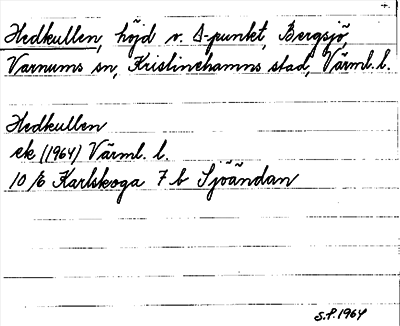 Hedkullen, höjd v. Δ-punkt, Bergsjö,
Varnums sn, Kristinehamns stad, Värml. l.
Hedkullen
ek (1964) Värml. l.
10 /E Karlskoga 7 b Sjöändan
S.P. 1964